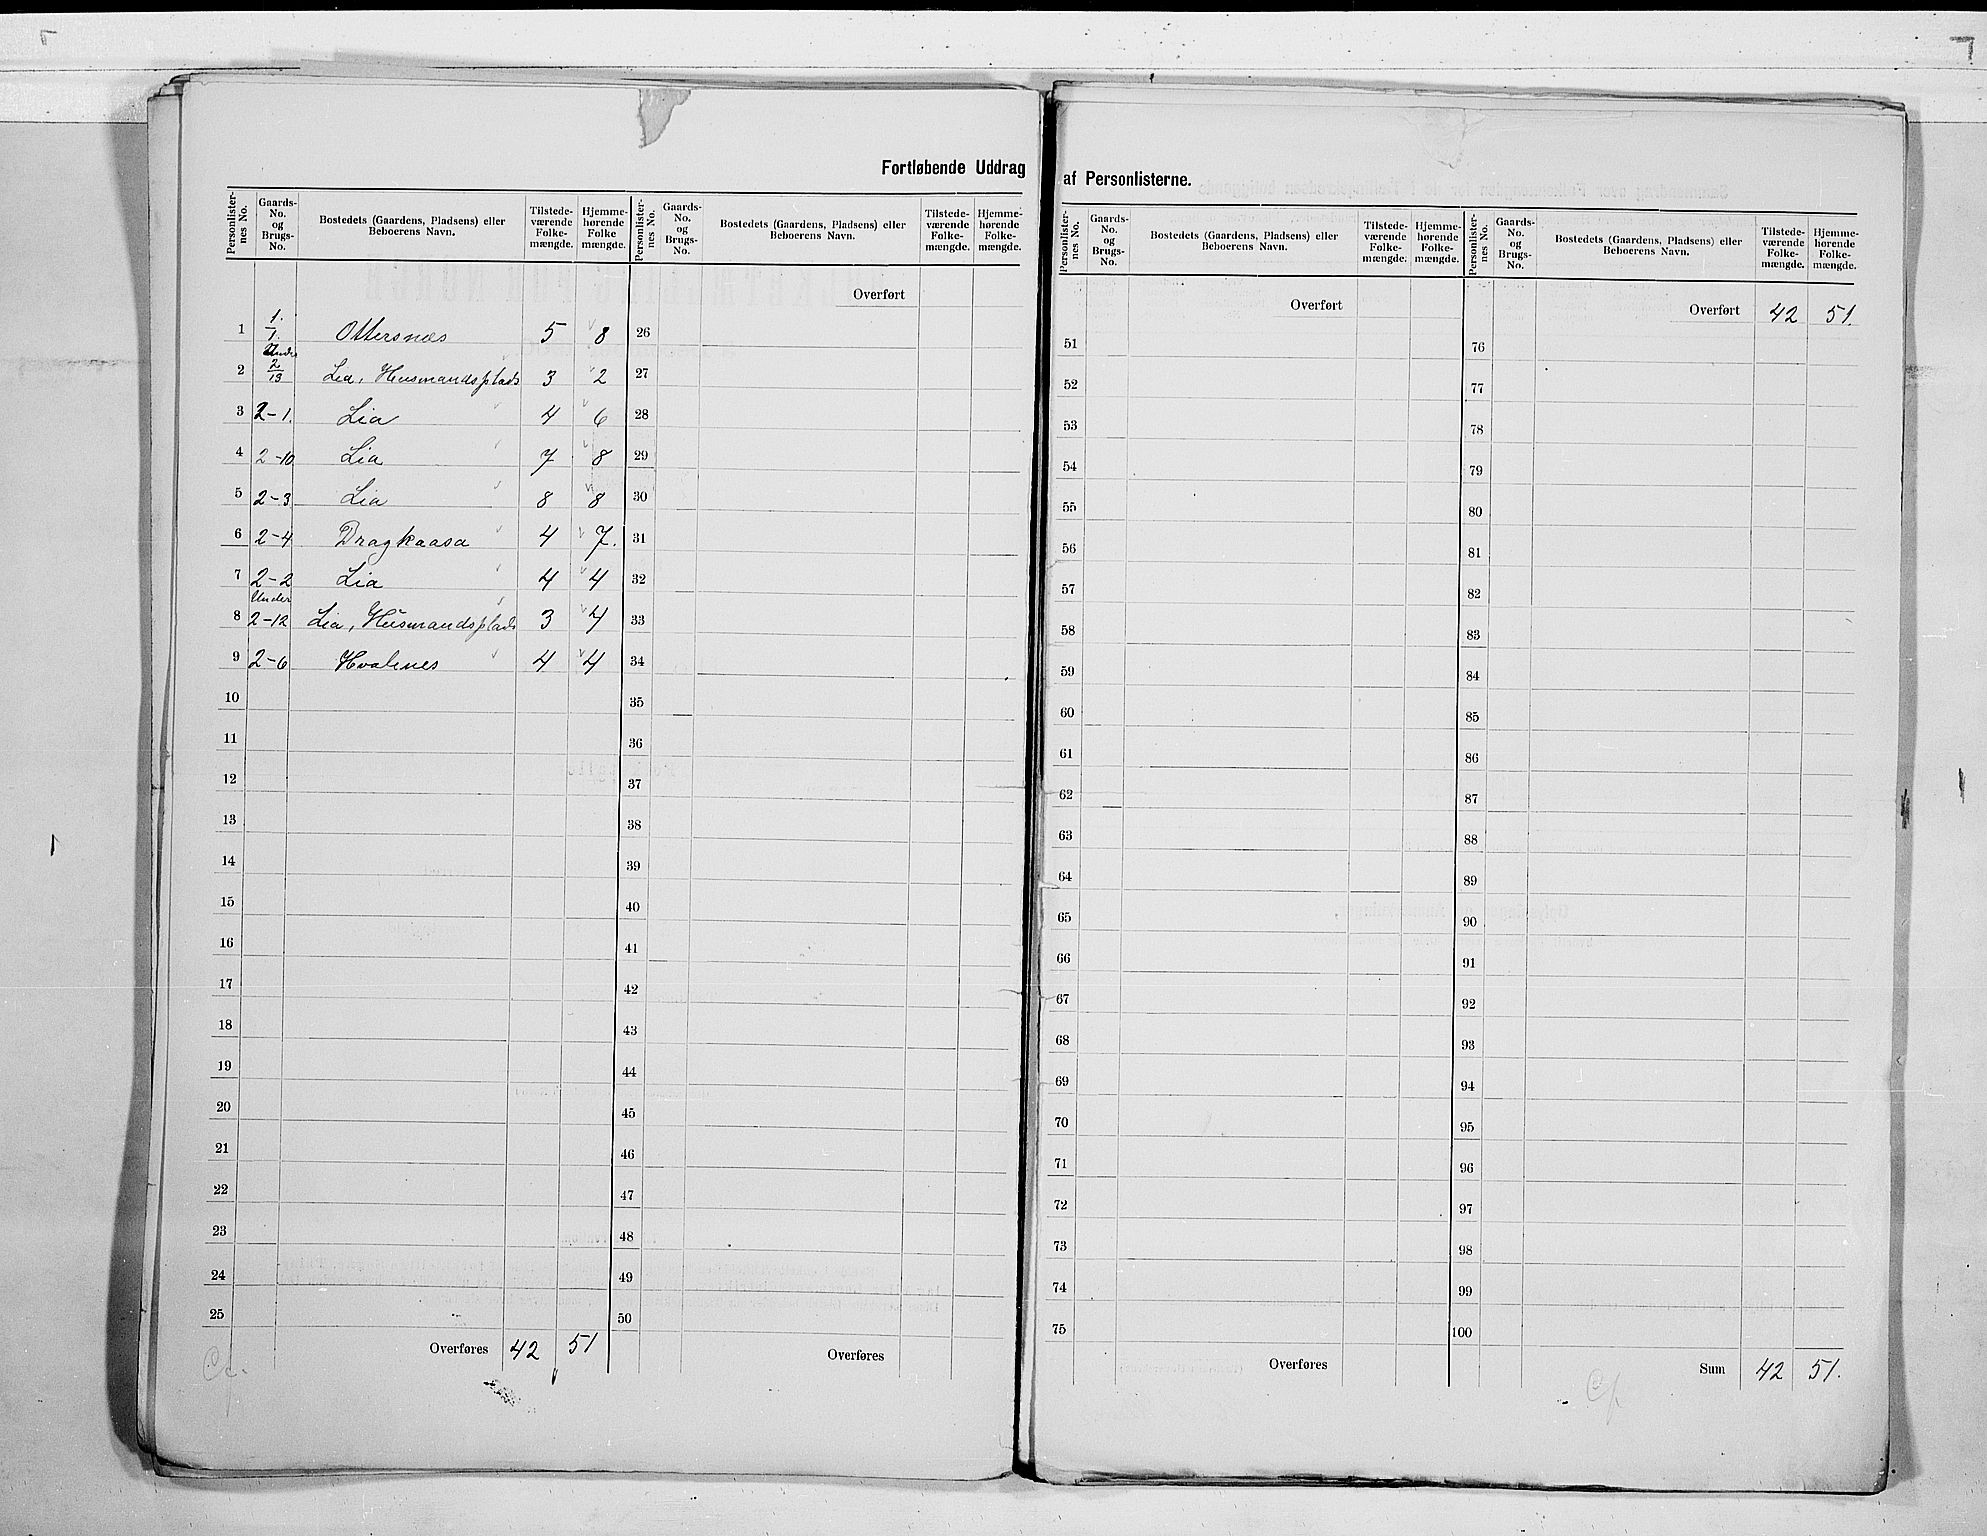 Fortløbende Uddrag af Personlisterne.
Personlister-nes No. | Gaards-No. og Brugs-No. | Bostedets (Gaardens, Pladsens) eller Beboerens Navn. | Tilstede-værende Folke-mængde. | Hjemme-hørende Folke mængde.
1 | 1./1. | Ottersnæs | 5 | 8
2 | Under 2/13 | Lia, Husmandsplads | 3 | 2
3 | 2-1. | Lia | 4 | 6
4 | 2-10 | Lia | 7 | 8
5 | 2-3 | Lia | 8 | 8
6 | 2-4 | Dragkaasa | 4 | 7.
7 | 2-2 | Lia | 4 | 4
8 | Under 2-12 | Lia, Husmandsplads | 3 | 4
9 | 2-6 | Hvalenes | 4 | 4
10
11
12
13
14
15
16
17
18
19
20
21
22
23
24
25
Overføres | 42 | 51
Personlister-nes No. | Gaards-No. og Brugs-No. | Bostedets (Gaardens, Pladsens) eller Beboerens Navn. | Tilstede-værende Folke-mængde. | Hjemme-hørende Folke-mængde.
Overført
26
27
28
29
30
31
32
33
34
35
36
37
38
39
40
41
42
43
44
45
46
47
48
49
50
Overføres
Personlister-nes No. | Gaards-No. og Brugs-No. | Bostedets (Gaardens, Pladsens) eller Beboerens Navn. | Tilstede-værende Folke-mængde. | Hjemme-hørende Folke-mængde.
Overført
51
52
53
54
55
56
57
58
59
60
61
62
63
64
65
66
67
68
69
70
71
72
73
74
75
Overføres
Personlister-nes No. | Gaards-No. og Brugs-No. | Bostedets (Gaardens, Pladsens) eller Beboerens Navn. | Tilstede-værende Folke-mængde. | Hjemme-hørende Folke-mængde.
Overført | 42 | 51.
76
77
78
79
80
81
82
83
84
85
86
87
88
89
90
91
92
93
94
95
96
97
98
99
100
Sum | 42 | 51.